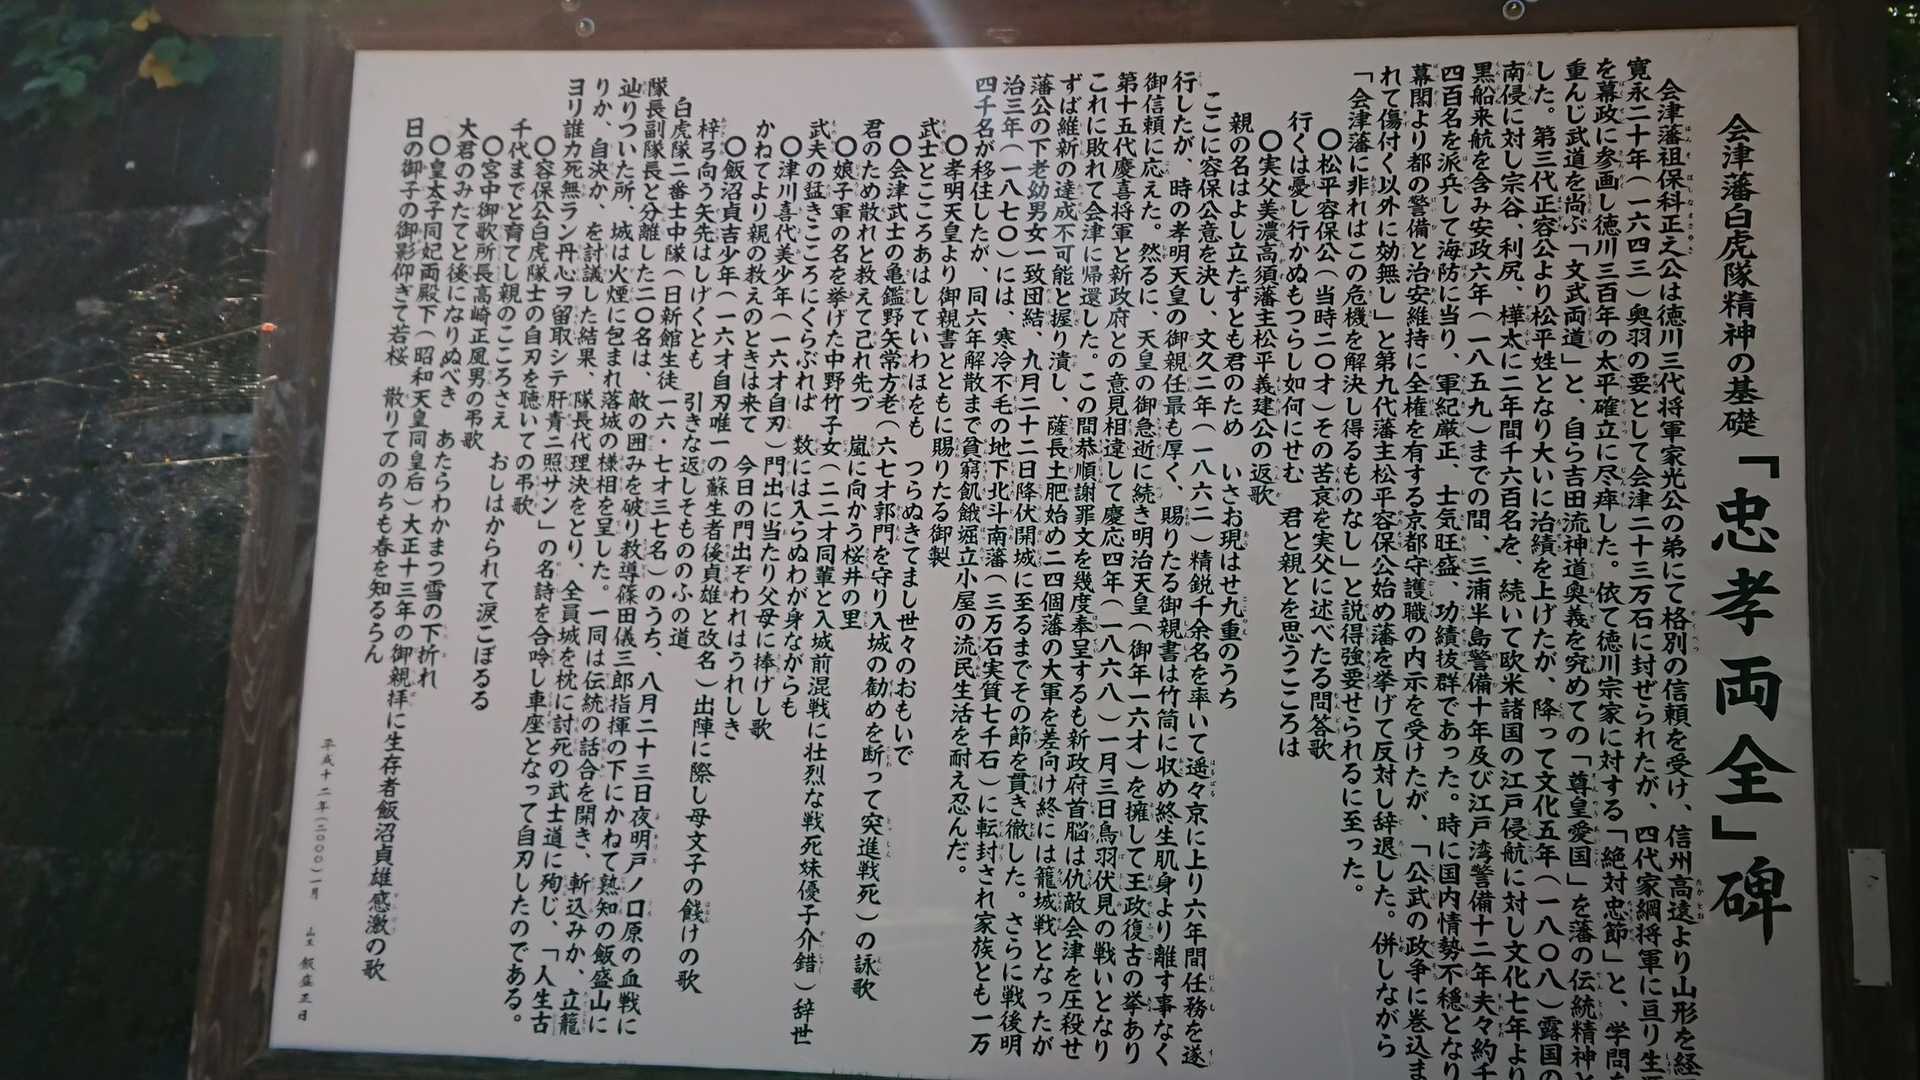 会津藩白虎隊精神の基礎「忠孝両全」碑
会津藩祖保科正之公は徳川三代将軍家光公の弟にて格別の信頼を受け、信州高遠より山形を経
寛永二十年(一六四三)奥羽の要として会津二十三万石に封ぜられたが、四代家綱将軍に亘り生
を幕政に参画し徳川三百年の太平確立に尽瘁した。依て徳川宗家に対する「絶対忠節」と、学問を
重んじ武道を尚ぶ「文武両道」と、自ら吉田流神道奥義を究めての「尊皇愛国」を藩の伝統精神と
した。第三代正容公より松平姓となり大いに治績を上げたが、降って文化五年(一八〇八)露国の
南侵に対し宗谷、利尻、樺太に二年間千六百名を、続いて欧米諸国の江戸侵航に対し文化七年より
黒船来航を含み安政六年(一八五九)までの間、三浦半島警備十年及び江戸湾警備十二年夫々約千
四百名を派兵して海防に当り、軍紀厳正、士気旺盛、功績抜群であった。時に国内情勢不穏となり
幕閣より都の警備と治安維持に全権を有する京都守護職の内示を受けたが、「公武の政争に巻込ま
れて傷付く以外に効無し」と第九代藩主松平容保公始め藩を挙げて反対し辞退した。併しながら
「会津藩に非ればこの危機を解決し得るものなし」と説得強要せられるに至った。
〇松平容保公(当時二〇才)その苦哀を実父に述べたる問答歌
行くは憂し行かぬもつらし如何にせむ　君と親とを思うこころは
〇実父美濃高須藩主松平義建公の返歌
親の名はよし立たずとも君のため　いさお現はせ九重のうち
ここに容保公意を決し、文久二年(一八六二)精鋭千余名を率いて遥々京に上り六年間任務を遂
行したが、時の孝明天皇の御親任最も厚く、賜りたる御親書は竹筒に収め終生肌身より離す事なく
御信頼に応えた。然るに、天皇の御急逝に続き明治天皇(御年一六才)を擁して王政復古の挙あり
第十五代慶喜将軍と新政府との意見相違して慶応四年(一八六八)一月三日鳥羽伏見の戦いとなり
これに敗れて会津に帰還した。この間恭順謝罪文を幾度奉呈するも新政府首脳は仇敵会津を圧殺せ
ずば維新の達成不可能と握り潰し、薩長土肥始め二四個藩の大軍を差向け終には籠城戦となったが
藩公の下老幼男女一致団結、九月二十二日降伏開城に至るまでその節を貫き徹した。さらに戦後明
治三年(一八七〇)には、寒冷不毛の地下北斗南藩(三万石実質七千石)に転封され家族とも一万
四千名が移住したが、同六年解散まで貧窮飢餓堀立小屋の流民生活を耐え忍んだ。
〇孝明天皇より御親書とともに賜りたる御製
武士とこころあはしていわほをも　つらぬきてまし世々のおもいで
〇会津武士の亀鑑野矢常方老(六七才郭門を守り入城の勧めを断って突進戦死)の詠歌
君のため散れと教えて己れ先づ　嵐に向かう桜井の里
〇娘子軍の名を挙げた中野竹子女(二二才同輩と入城前混戦に壮烈な戦死妹優子介錯)辞世
武夫の猛きこころにくらぶれば　数には入らぬわが身ながらも
〇津川喜代美少年(一六才自刃)門出に当たり父母に捧げし歌
かねてより親の教えのときは来て　今日の門出ぞわれはうれしき
〇飯沼貞吉少年(一六才自刃唯一の蘇生者後貞雄と改名)出陣に際し母文子の餞けの歌
梓弓向う矢先はしげくとも　引きな返しそもののふの道
白虎隊二番士中隊(日新館生徒一六・七才三七名)のうち、八月二十三日夜明戸ノ口原の血戦に
隊長副隊長と分離した二〇名は、敵の囲みを破り教導篠田儀三郎指揮の下にかねて熟知の飯盛山に
辿りついた所、城は火煙に包まれ落城の様相を呈した。一同は伝統の話合を開き、斬込みか、立籠
りか、自決か、を討議した結果、隊長代理決をとり、全員城を枕に討死の武士道に殉じ、「人生古
ヨリ誰カ死無ラン丹心ヲ留取シテ肝青ニ照サン」の名詩を合吟し車座となって自刃したのである。
〇容保公白虎隊士の自刃を聴いての弔歌
千代までと育てし親のこころさえ　おしはかられて涙こぼるる
〇宮中御歌所長高崎正風男の弔歌
大君のみたてと後になりぬべき　あたらわかまつ雪の下折れ
〇皇太子同妃両殿下(昭和天皇同皇后)大正十三年の御親拝に生存者飯沼貞雄感激の歌
日の御子の御影仰ぎて若桜　散りてののちも春を知るらん
平成十二年(二〇〇〇)一月　山主　飯盛正日